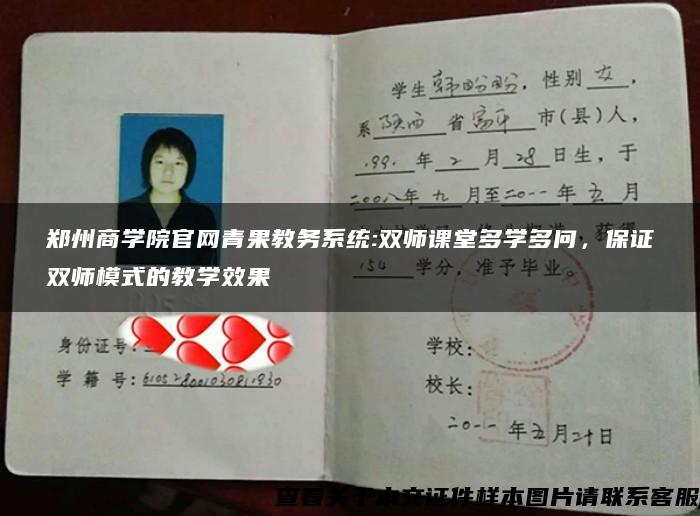 学生韩盼盼，性别女，
系陕西省富平市(县)人，
199 年2月28日生，于
二00八年九月至二0一一年五月
郑州商学院官网青果教务系统:双师课堂多学多问，保证
双师模式的教学效果
154学分，准予毕业。
身份证号:
学籍号:
学校:
校长:
二0一一年五月二十日
查看关于本文证件样本图片请联系客服